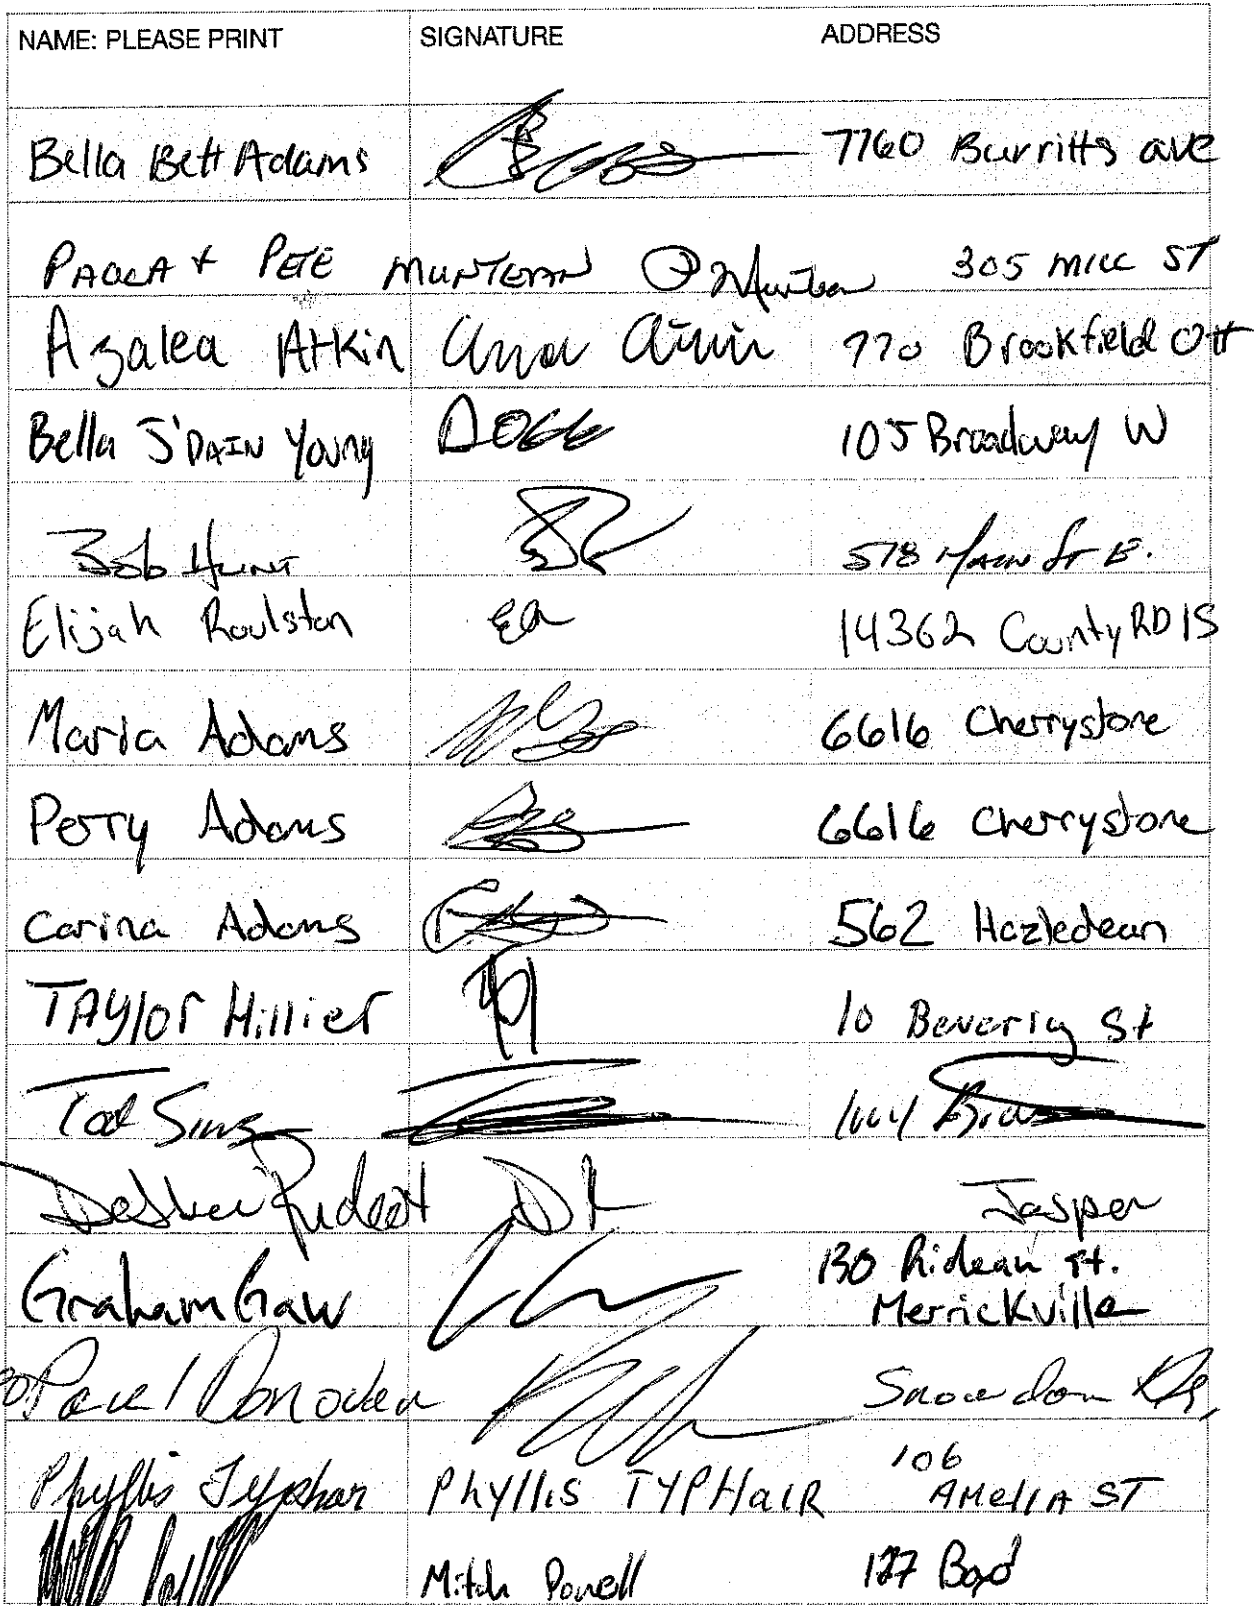 NAME: PLEASE PRINT SIGNATURE ADDRESS
Bella Bett Adams 7760 Burritts ave
PAOLA + PETE MUNTEAN P Muntean 305 MILL ST
Azalea Atkin 770 Brookfield Ott
Bella J'DAIN Young 105 Broadway W
Bob Hunt 578 Main St E.
Elijah Roulston 14362 County RD 15
Marla Adams 6616 Cherrystone
Perry Adams 6616 Cherrystone
Carina Adams 562 Hazledean
TAYlor Hillier 10 Beverly St
Tod
DR Jasper
Graham Gaw 130 Rideau St.
Merrickville
Paul Donovan Snowdon
Phyllis Typhair Phyllis TYPHaiR 106
AMeliA ST
Mitch Powell 127